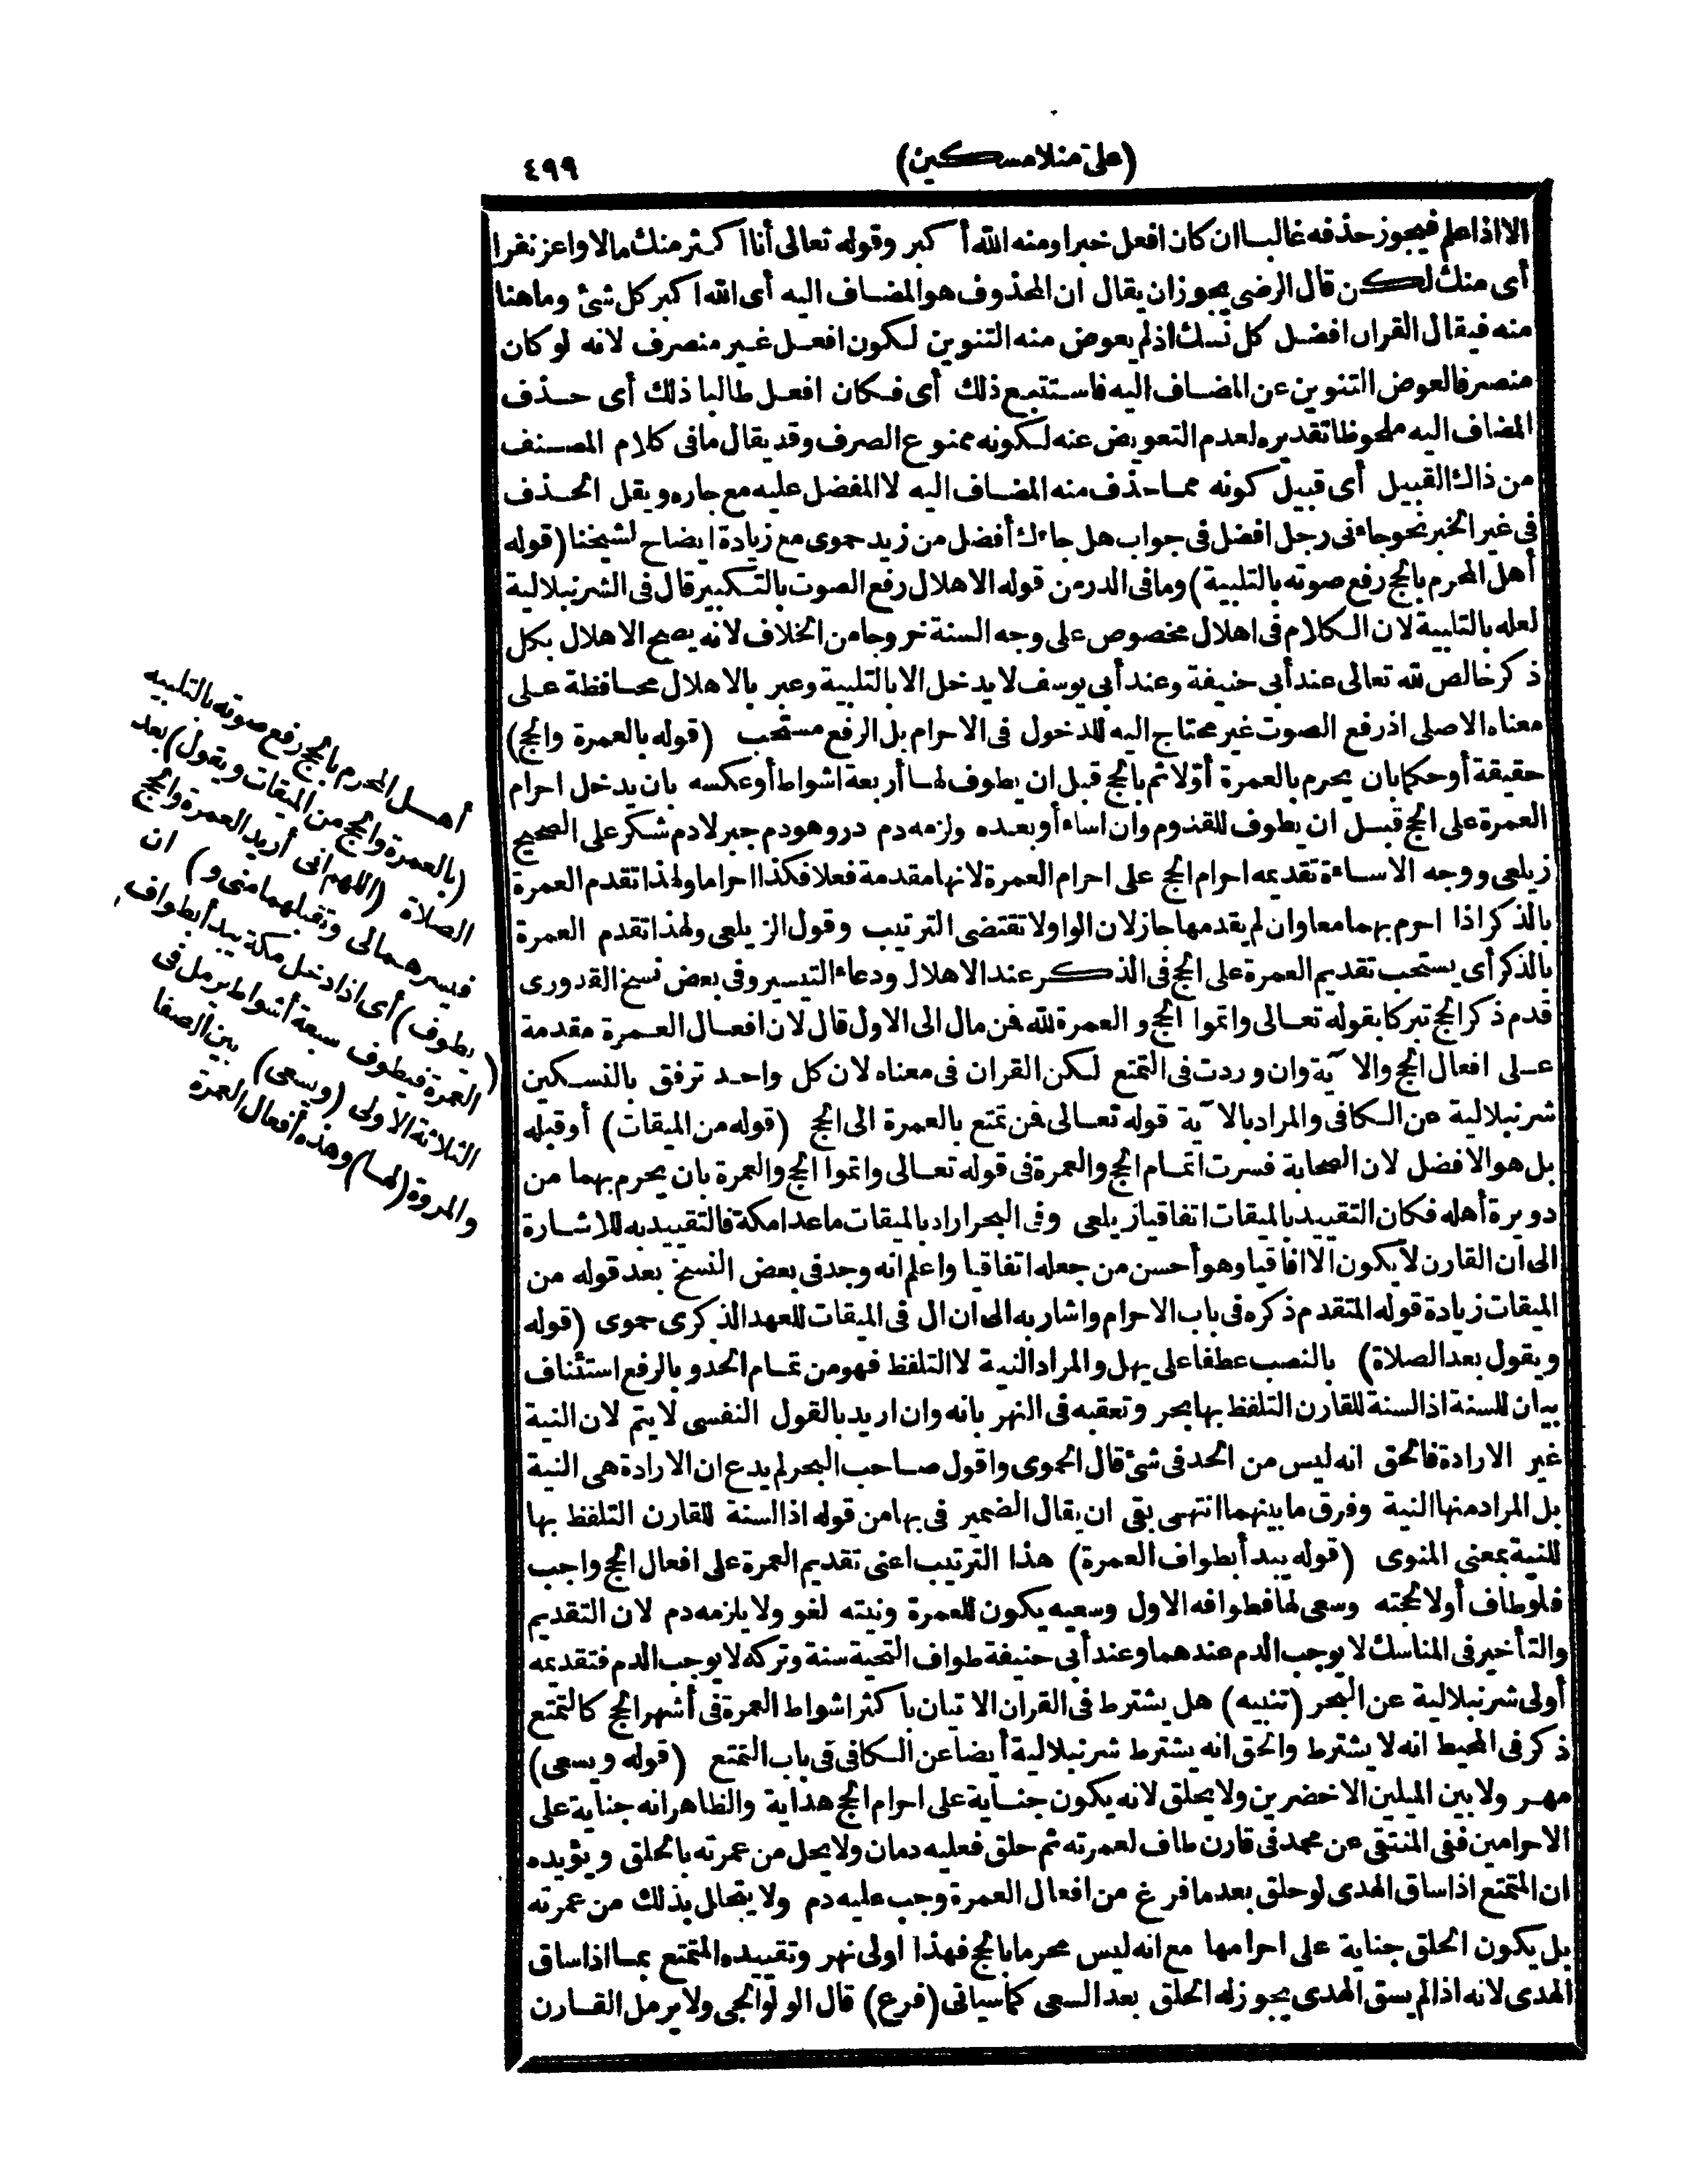 (على منلا مسكين)
٤٩٩
الا اذا علم فيجوز حذفه غالبا ان كان افعل خبرا ومنه الله أكبر وقوله تعالى أنا اكثر منك مالا واعز نفرا
أى منك لكن قال الرضى يجوز ان يقال ان المحذوف هو المضاف اليه أى الله اكبر كل شئ وما هنا
منه فيقال القران افضل كل نسك اذ لم يعوض منه التنوين لكون افعل غير منصرف لانه لو كان
منصرفا لعوض التنوين عن المضاف اليه فاستتبع ذلك أى فكان افعل طالبا ذلك أى حذف
المضاف اليه ملحوظا تقديره لعدم التعويض عنه لكونه ممنوع الصرف وقد يقال ما فى كلام المصنف
من ذاك القبيل أى قبيل كونه مما حذف منه المضاف اليه لا المفضل عليه مع جاره ويقل الحذف
فى غير الخبر نحو جاءنى رجل افضل فى جواب هل جاءك أفضل من زيد حموى مع زيادة ايضاح لشيخنا (قوله
أهل المحرم بالحج رفع صوته بالتلبية) وما فى الدر من قوله الاهلال رفع الصوت بالتكبير قال فى الشرنبلالية
لعله بالتلبية لان الكلام فى اهلال مخصوص على وجه السنة خروجا من الخلاف لانه يصح الاهلال بكل
ذكر خالص لله تعالى عند أبى حنيفة وعند أبى يوسف لا يدخل الا بالتلبية وعبر بالاهلال محافظة على
معناه الاصلى اذ رفع الصوت غير محتاج اليه للدخول فى الاحرام بل الرفع مستحب (قوله بالعمرة والحج)
حقيقة أو حكما بان يحرم بالعمرة أوّلا ثم بالحج قبل ان يطوف لها أربعة اشواط أو عكسه بان يدخل احرام
العمرة على الحج قبل ان يطوف للقدوم وان اساء أو بعده ولزمه دم در وهو دم جبر لا دم شكر على الصحيح
زيلعى ووجه الاساءة تقديمه احرام الحج على احرام العمرة لانها مقدمة فعلا فكذا احراما ولهذا تقدم العمرة
بالذكر اذا احرم بهما معا وان لم يقدمها جاز لان الواو لا تقتضى الترتيب وقول الزيلعى ولهذا تقدم العمرة
بالذكر أى يستحب تقديم العمرة على الحج فى الذكر عند الاهلال ودعاء التيسير وفى بعض نسخ القدورى
قدم ذكر الحج تبركا بقوله تعالى واتموا الحج والعمرة لله فمن مال الى الاول قال لان افعال العمرة مقدمة
على افعال الحج والا ٓية وان وردت فى التمتع لكن القران فى معناه لان كل واحد ترفق بالنسكين
شرنبلالية عن الكافى والمراد بالا ٓية قوله تعالى فمن تمتع بالعمرة الى الحج (قوله من الميقات) أو قبله
بل هو الافضل لان الصحابة فسرت اتمام الحج والعمرة فى قوله تعالى واتموا الحج والعمرة بان يحرم بهما من
دويرة أهله فكان التقييد بالميقات اتفاقيا زيلعى وفى البحر اراد بالميقات ما عدا مكة فالتقييد به للاشارة
الى ان القارن لا يكون الا افاقيا وهو أحسن من جعله اتفاقيا واعلم انه وجد فى بعض النسخ بعد قوله من
الميقات زيادة قوله المتقدم ذكره فى باب الاحرام واشار به الى ان ال فى الميقات للعهد الذكرى حموى (قوله
ويقول بعد الصلاة) بالنصب عطفا على يهل والمراد النية لا التلفظ فهو من تمام الحد وبالرفع استئناف
بيان للسنة اذ السنة للقارن التلفظ بها بحر وتعقبه فى النهر بانه وان اريد بالقول النفسى لا يتم لان النية
غير الارادة فالحق انه ليس من الحد فى شئ قال الحموى واقول صاحب البحر لم يدع ان الارادة هى النية
بل المراد منها النية وفرق ما بينهما انتهى بقى ان يقال الضمير فى بها من قوله اذ السنة للقارن التلفظ بها
للنية بمعنى المنوى (قوله يبدأ بطواف العمرة) هذا الترتيب اعنى تقديم العمرة على افعال الحج واجب
فلو طاف أولا لحجته وسعى لها فطوافه الاول وسعيه يكون للعمرة ونيته لغو ولا يلزمه دم لان التقديم
والتأخير فى المناسك لا يوجب الدم عندهما وعند أبى حنيفة طواف التحية سنة وتركه لا يوجب الدم فتقديمه
أولى شرنبلالية عن البحر (تنبيه) هل يشترط فى القران الاتيان باكثر اشواط العمرة فى أشهر الحج كالتمتع
ذكر فى المحيط انه لا يشترط والحق انه يشترط شرنبلالية أيضا عن الكافى فى باب التمتع (قوله ويسعى)
مهر ولا بين الميلين الاخضرين ولا يحلق لانه يكون جناية على احرام الحج هداية والظاهر انه جناية على
الاحرامين ففى المنتقى عن محمد فى قارن طاف لعمرته ثم حلق فعليه دمان ولا يحل من عمرته بالحلق ويؤيده
ان المتمتع اذا ساق الهدى لو حلق بعد ما فرغ من افعال العمرة وجب عليه دم ولا يتحلل بذلك من عمرته
بل يكون الحلق جناية على احرامها مع انه ليس محرما بالحج فهذا اولى نهر وتقييده المتمتع بما اذا ساق
الهدى لانه اذا لم يسق الهدى يجوز له الحلق بعد السعى كما سياتى (فرع) قال الولوالجى ولا يرمل القارن
أهل المحرم بالحج رفع صوته بالتلبيه
(بالعمرة والحج من الميقات ويقول) بعد
الصلاة (اللهم انى أريد العمرة والحج
فيسرهما لى وتقبلهما منى و) ان
(يطوف) أى اذا دخل مكة يبدأ بطواف
العمرة فيطوف سبعة أشواط يرمل فى
الثلاثة الاولى (ويسعى) بين الصفا
والمروة (لها) وهذه أفعال العمرة